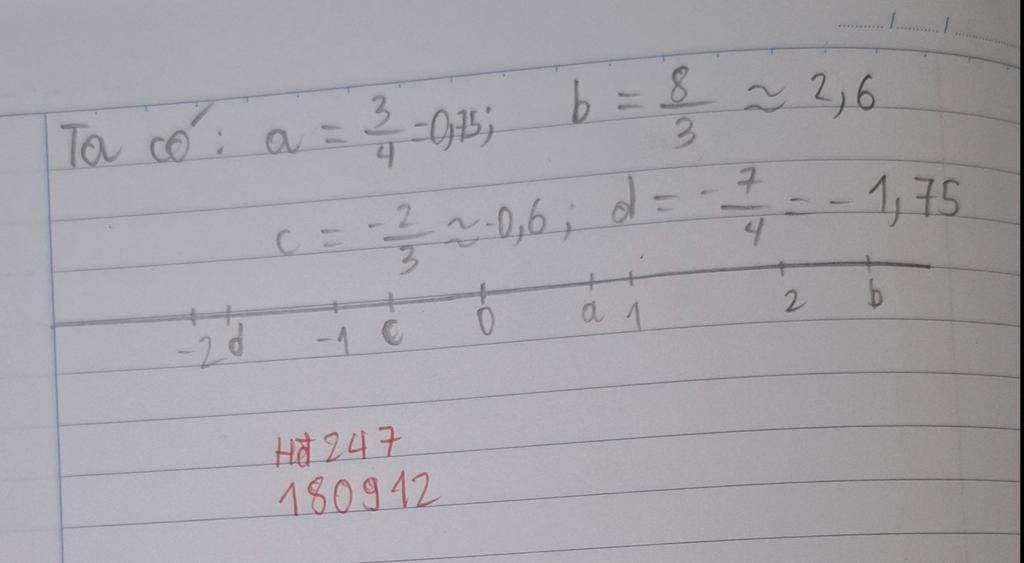 ....../....../......
Ta có: a = 3/4 = 0,75; b = 8/3 ≈ 2,6
c = -2/3 ≈ -0,6; d = -7/4 = -1,75
-2 d -1 c 0 a 1 2 b
Hđ 247
180912